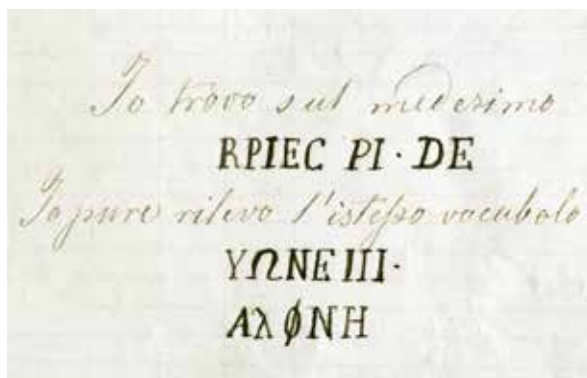 Io trovo sul medesimo
RPIEC PI · DE
Io pure rilevo l'istesso vocabolo
ΥΩΝΕ ΙΙΙ ·
ΑλΦΝΗ